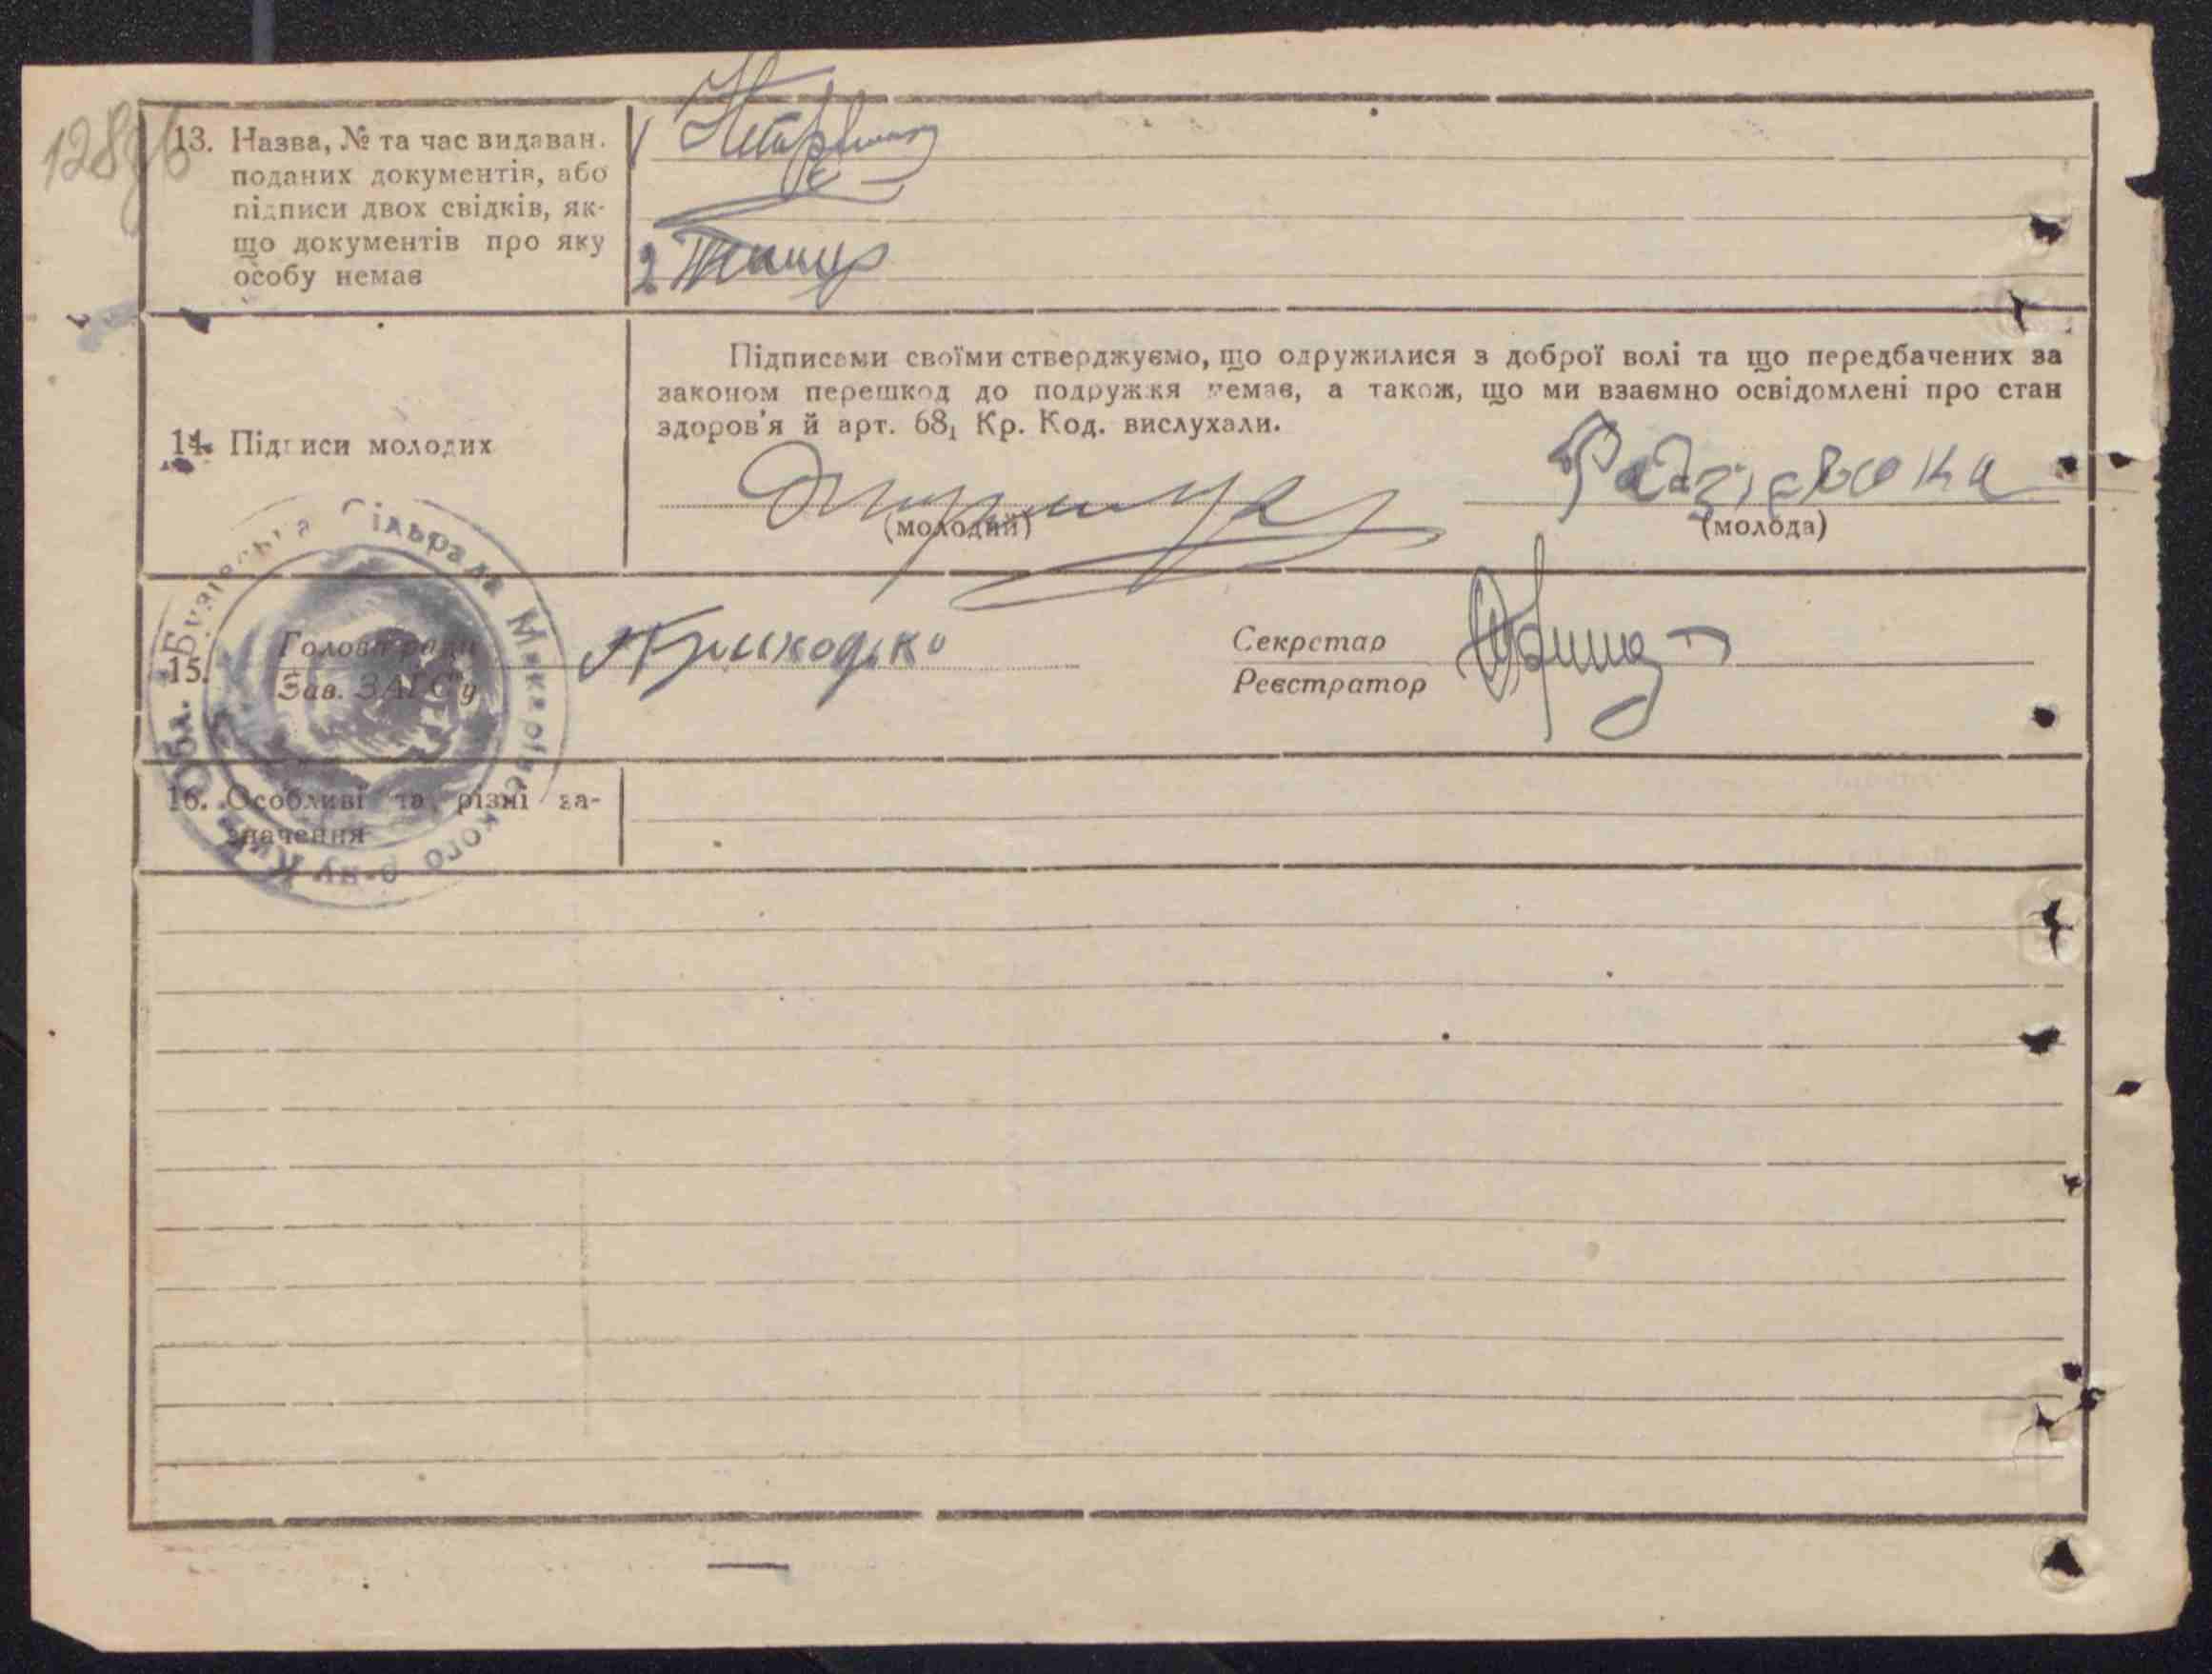 128
13. Назва, № та час видаван.
поданих документів, або
підписи двох свідків, як-
що документів про яку
особу немає
1
2
Підписами своїми стверджуємо, що одружилися з доброї волі та що передбачених за
законом перешкод до подружжя немає, а також, що ми взаємно освідомлені про стан
здоров'я й арт. 68₁ Кр. Код. вислухали.
14. Підписи молодих
(молодий)
(молода)
15. Голова ради
Зав. ЗАГС'у
Приходько
Секретар
Реєстратор
16. Особливі та різні за-
значення
Сільрада Макарівського р-ну Київ. Обл.